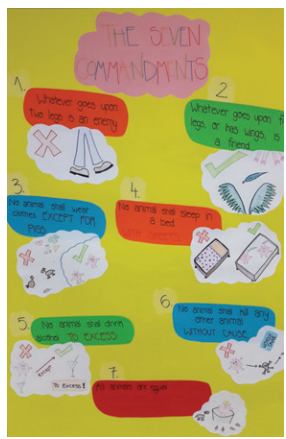 THE SEVEN
COMMANDMENTS
1.
Whatever goes upon
two legs is an enemy
2.
Whatever goes upon f
legs, or has wings, is
a friend.
3.
No animal shall wear
clothes EXCEPT FOR
PIGS
4.
No animal shall sleep in
a bed
WITH SHEETS
5.
No animal shall drink
alcohol TO EXCESS
TO EXCESS!
6.
No animal shall kill any
other animal
WITHOUT CAUSE
7.
All animals are equal